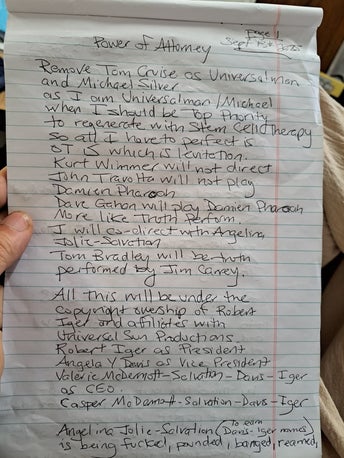 Page 1
Sept 1st 2025
Power of Attorney
Remove Tom Cruise as Universalman
and Michael Silver
as I am Universalman/Michael
when I should be Top Priority
to regenerate with Stem Cell Therapy
so all I have to perfect is
OT IX which is levitation.
Kurt Wimmer will not direct
John Travolta will not play
Damien Pharaoh
Dave Gahan will play Damien Pharaoh
More like Truth Perform.
I will co-direct with Angelina
Jolie-Salvation
Tom Bradley will be truth
performed by Jim Carrey.
All This will be under the
copyright ownership of Robert
Iger and affiliates with
Universal Sun Productions.
Robert Iger as President
Angela Y Davis as Vice President
Valerie McDermott-Salvation-Davis-Iger
as CEO.
Casper McDermott-Salvation-Davis-Iger
Angelina Jolie-Salvation (To earn Davis-Iger names)
is being fucked, pounded, banged, reamed,